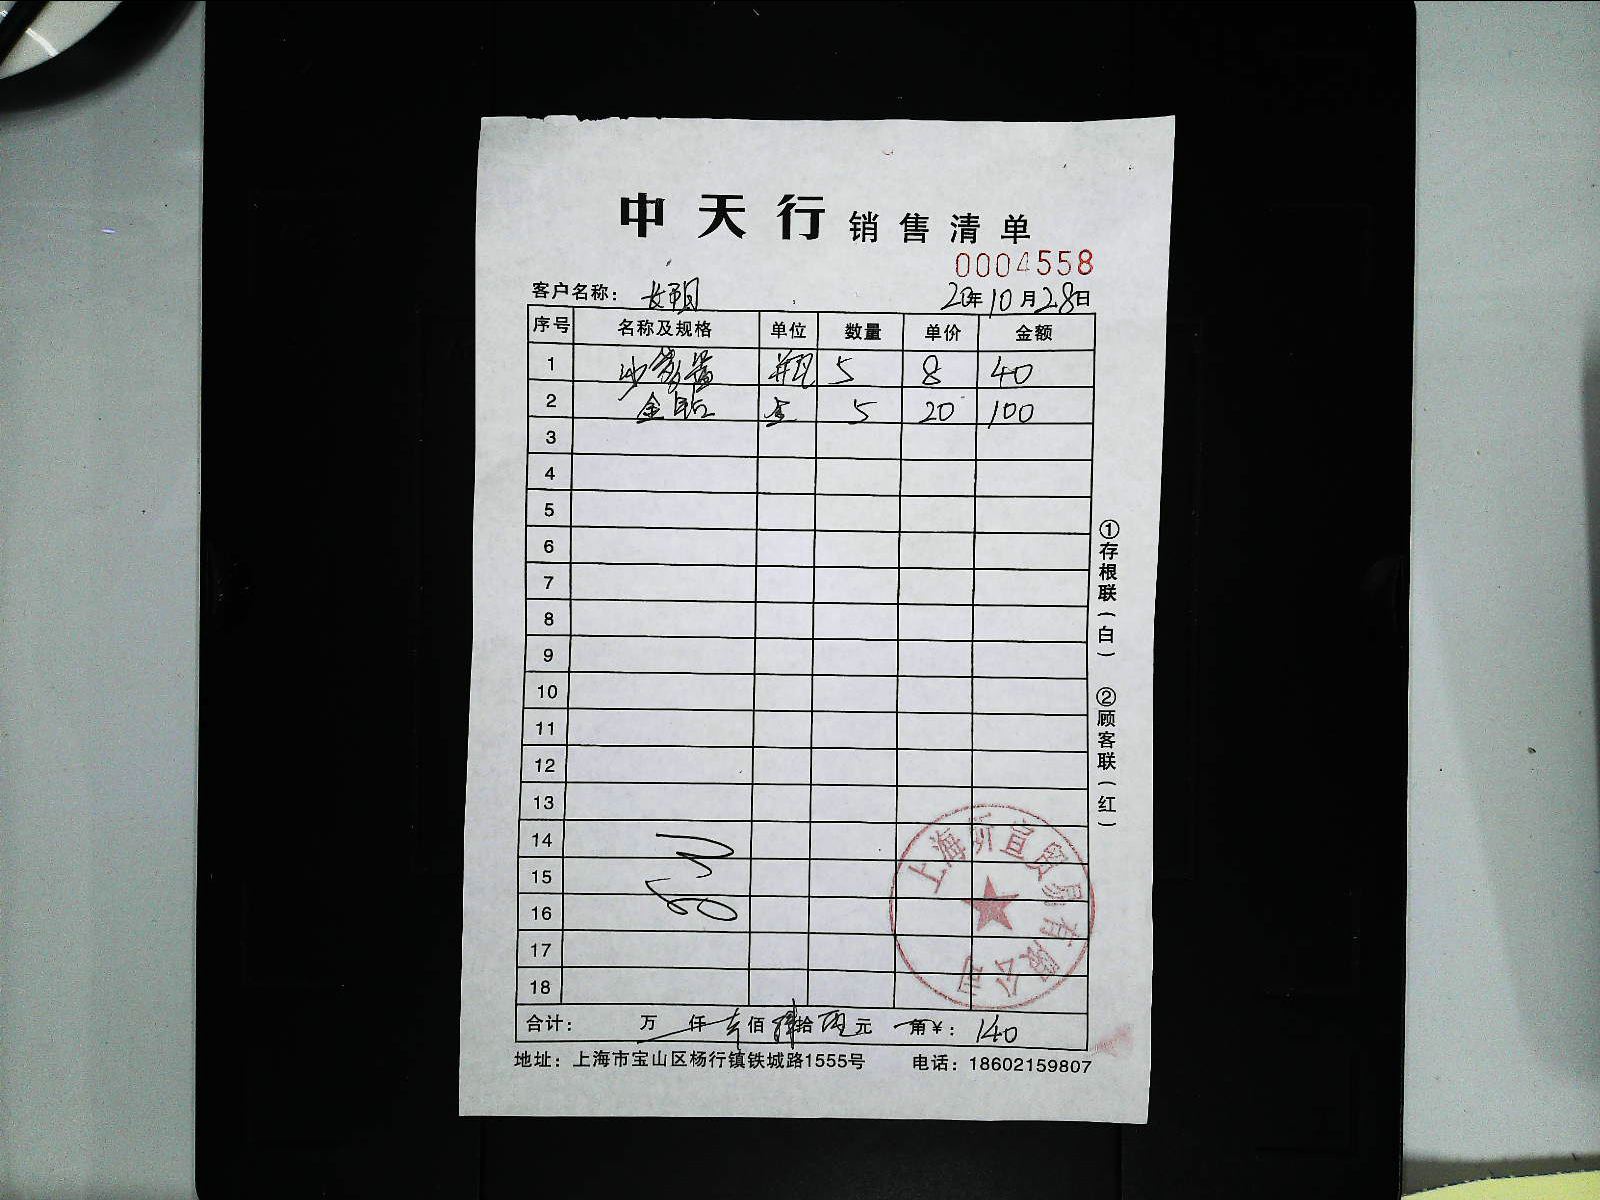 中天行 销售清单
0004558
客户名称：
20年10月28日
序号 名称及规格 单位 数量 单价 金额
1 瓶 5 8 40
2 5 20 100
3
4
5
6
7
8
9
10
11
12
13
14
15
16
17
18
合计： 万 仟 壹佰 肆拾 元 角 ¥： 140
地址：上海市宝山区杨行镇铁城路1555号 电话：18602159807
①存根联（白） ②顾客联（红）
上海昕宣贸易有限公司